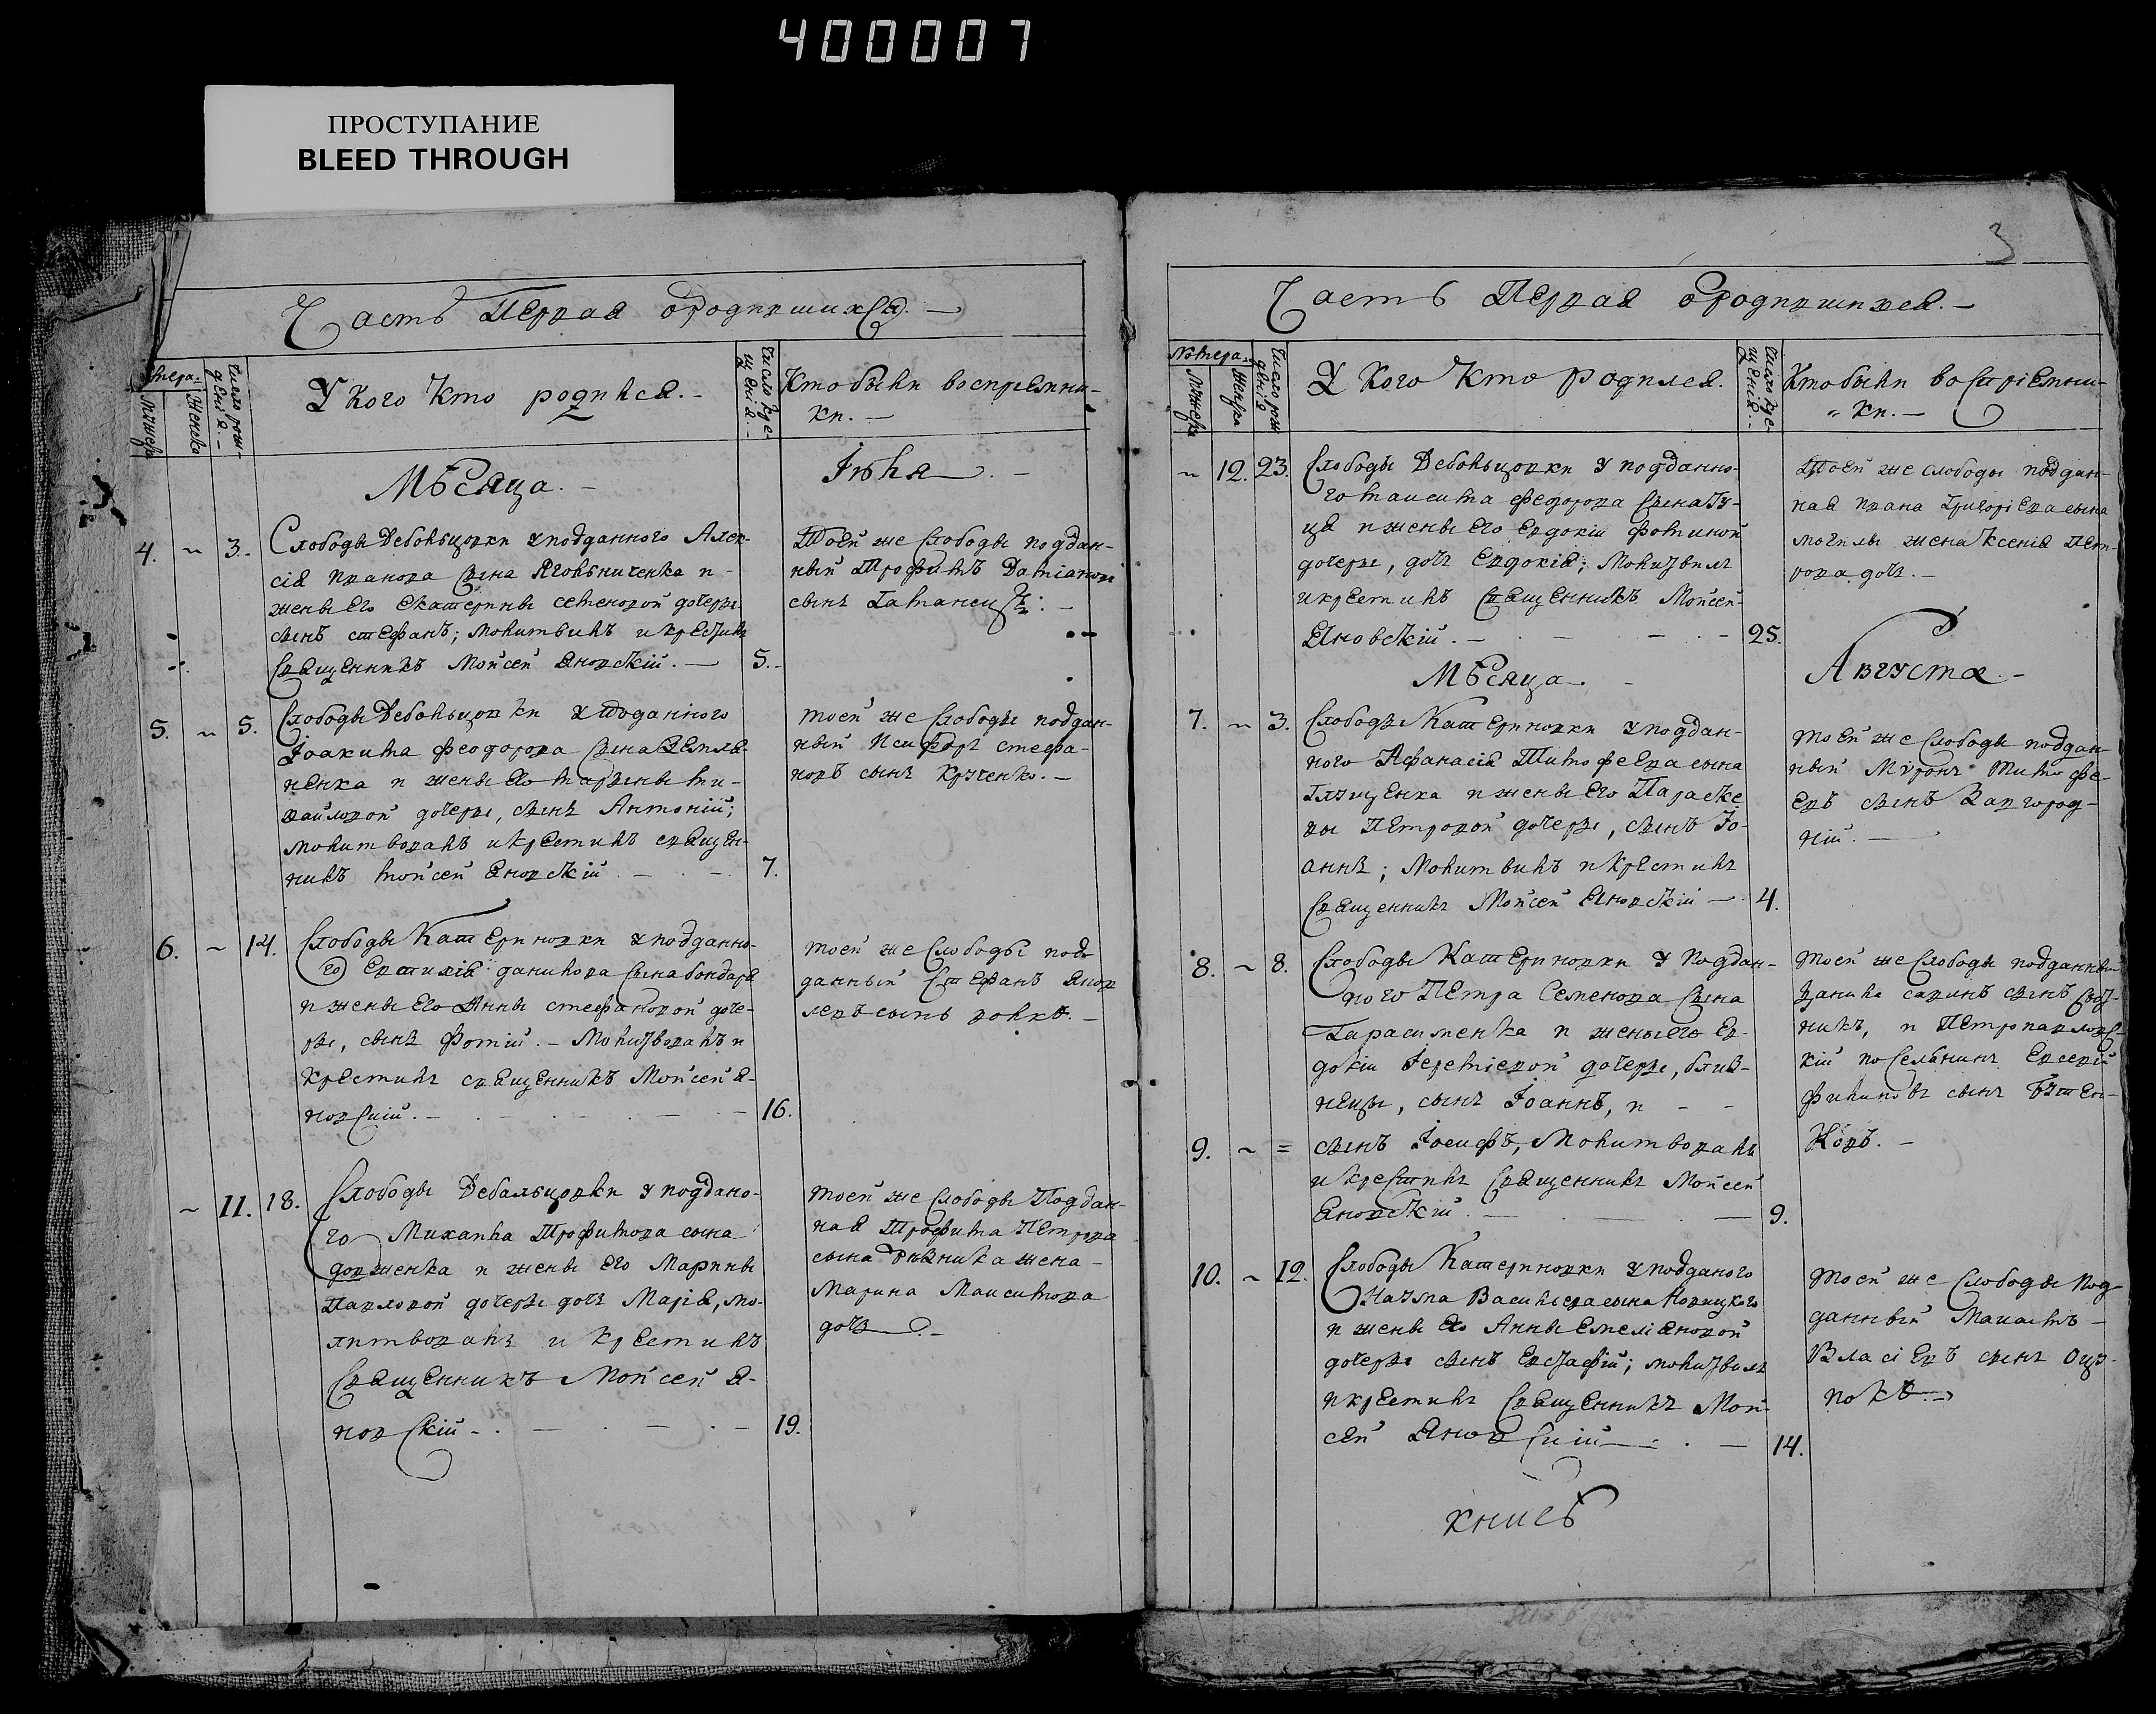 400007
ПРОСТУПАНИЕ
BLEED THROUGH
3
Часть Первая ородившихся. —
Нумера
Мужеска
Женска
Число рож-
денія. —
У кого кто родился. —
Число кре-
щенія. —
Кто были воспріемни-
ки. —
Мѣсяца. —
Іюля —
4. ~ 3. Слободы Дебольцовки у подданного Алек-
сія Иванова сына
жены его Екатерины Семеновой дочеры
сынъ Стефанъ; молитвилъ и крестилъ
священникъ Мойсей Яновскій. — 5.
Тоей же слободы поддан-
ный Трофимъ Даміановъ
сынъ
5. ~ 5. Слободы Дебольцовки у подданного
Іоакима Феодорова сына
ченка и жены его Марины Ми-
хайловой дочеры, сынъ Антоній;
молитвовалъ и крестилъ священ-
никъ Мойсей Яновскій. — 7.
тоей же слободы поддан-
ный Никифоръ Стефа-
новъ сынъ Крученко. —
6. ~ 14. Слободы Катериновки у подданно-
го Евтихія Данилова сына Бондаря
и жены его Анны Стефановой доче-
ры, сынъ Фотій. — Молитвовалъ и
крестилъ священникъ Мойсей Я-
новскій. — 16.
тоей же слободы под-
данный Стефанъ Яков
левъ сынъ Вовкъ. —
~ 11. 18. Слободы Дебальцовки у поддано-
го Михаила Трофимова сына
Довженка и жены его Марины
Павловой дочеры дочь Марія, мо-
литвовалъ и крестилъ
священникъ Мойсей Я-
новскій. — 19.
тоей же слободы Поддан-
ная Трофима Петрова
сына жена —
Марина Максимова
дочь. —
Часть Первая ородившихся. —
Нумера
Мужеска
Женска
Число рож
денія
У кого кто родился.
Число кре-
щенія. —
Кто были воспріемни-
ки. —
~ 12. 23. Слободы Дебольцовки у подданно-
го Максима Федорова сына Гу-
ца и жены его Евдокіи Фотиной
дочеры, дочь Евдокія; молитвилъ
и крестилъ священникъ Мойсей
Яновскій. — 25.
Тоей же слободы поддан-
ная Ивана Григоріева сына
Могилы жена Ксенія Пет-
рова дочь. —
Мѣсяца. —
Августа. —
7. ~ 3. Слободы Катериновки у поддан-
ного Афанасія Тимофеева сына
Глущенка и жены его Параске
вы Петровой дочеры, сынъ Іо-
аннъ; молитвилъ и крестилъ
священникъ Мойсей Яновскій — 4.
тоей же слободы поддан-
ный Мѵронъ Тимофе-
евъ сынъ Загород-
ній. —
8. ~ 8. Слободы Катериновки у поддан-
ного Петра Семенова сына
Гарасименка и жены его Ев-
докіи Іереміевой дочеры, близ-
нецы, сынъ Іоаннъ, и —
9. ~ = сынъ Іосифъ, молитвовалъ
и крестилъ священникъ Мойсей
Яновскій. — 9.
тоей же слободы подданный
Данила Савинъ сынъ
никъ, и Петропавловс-
кій поселянинъ Евсевій
Филиповъ сынъ
ковъ. —
10. ~ 12. Слободы Катериновки у подданого
Наума Васильева сына Новицкого
и жены его Анны Емеліановой
дочеры сынъ Евстафій; молитвилъ
и крестилъ священникъ Мой-
сей Яновскій — 14.
тоей же слободы Под-
данный —
Власіевъ сынъ Оцу-
покъ. —